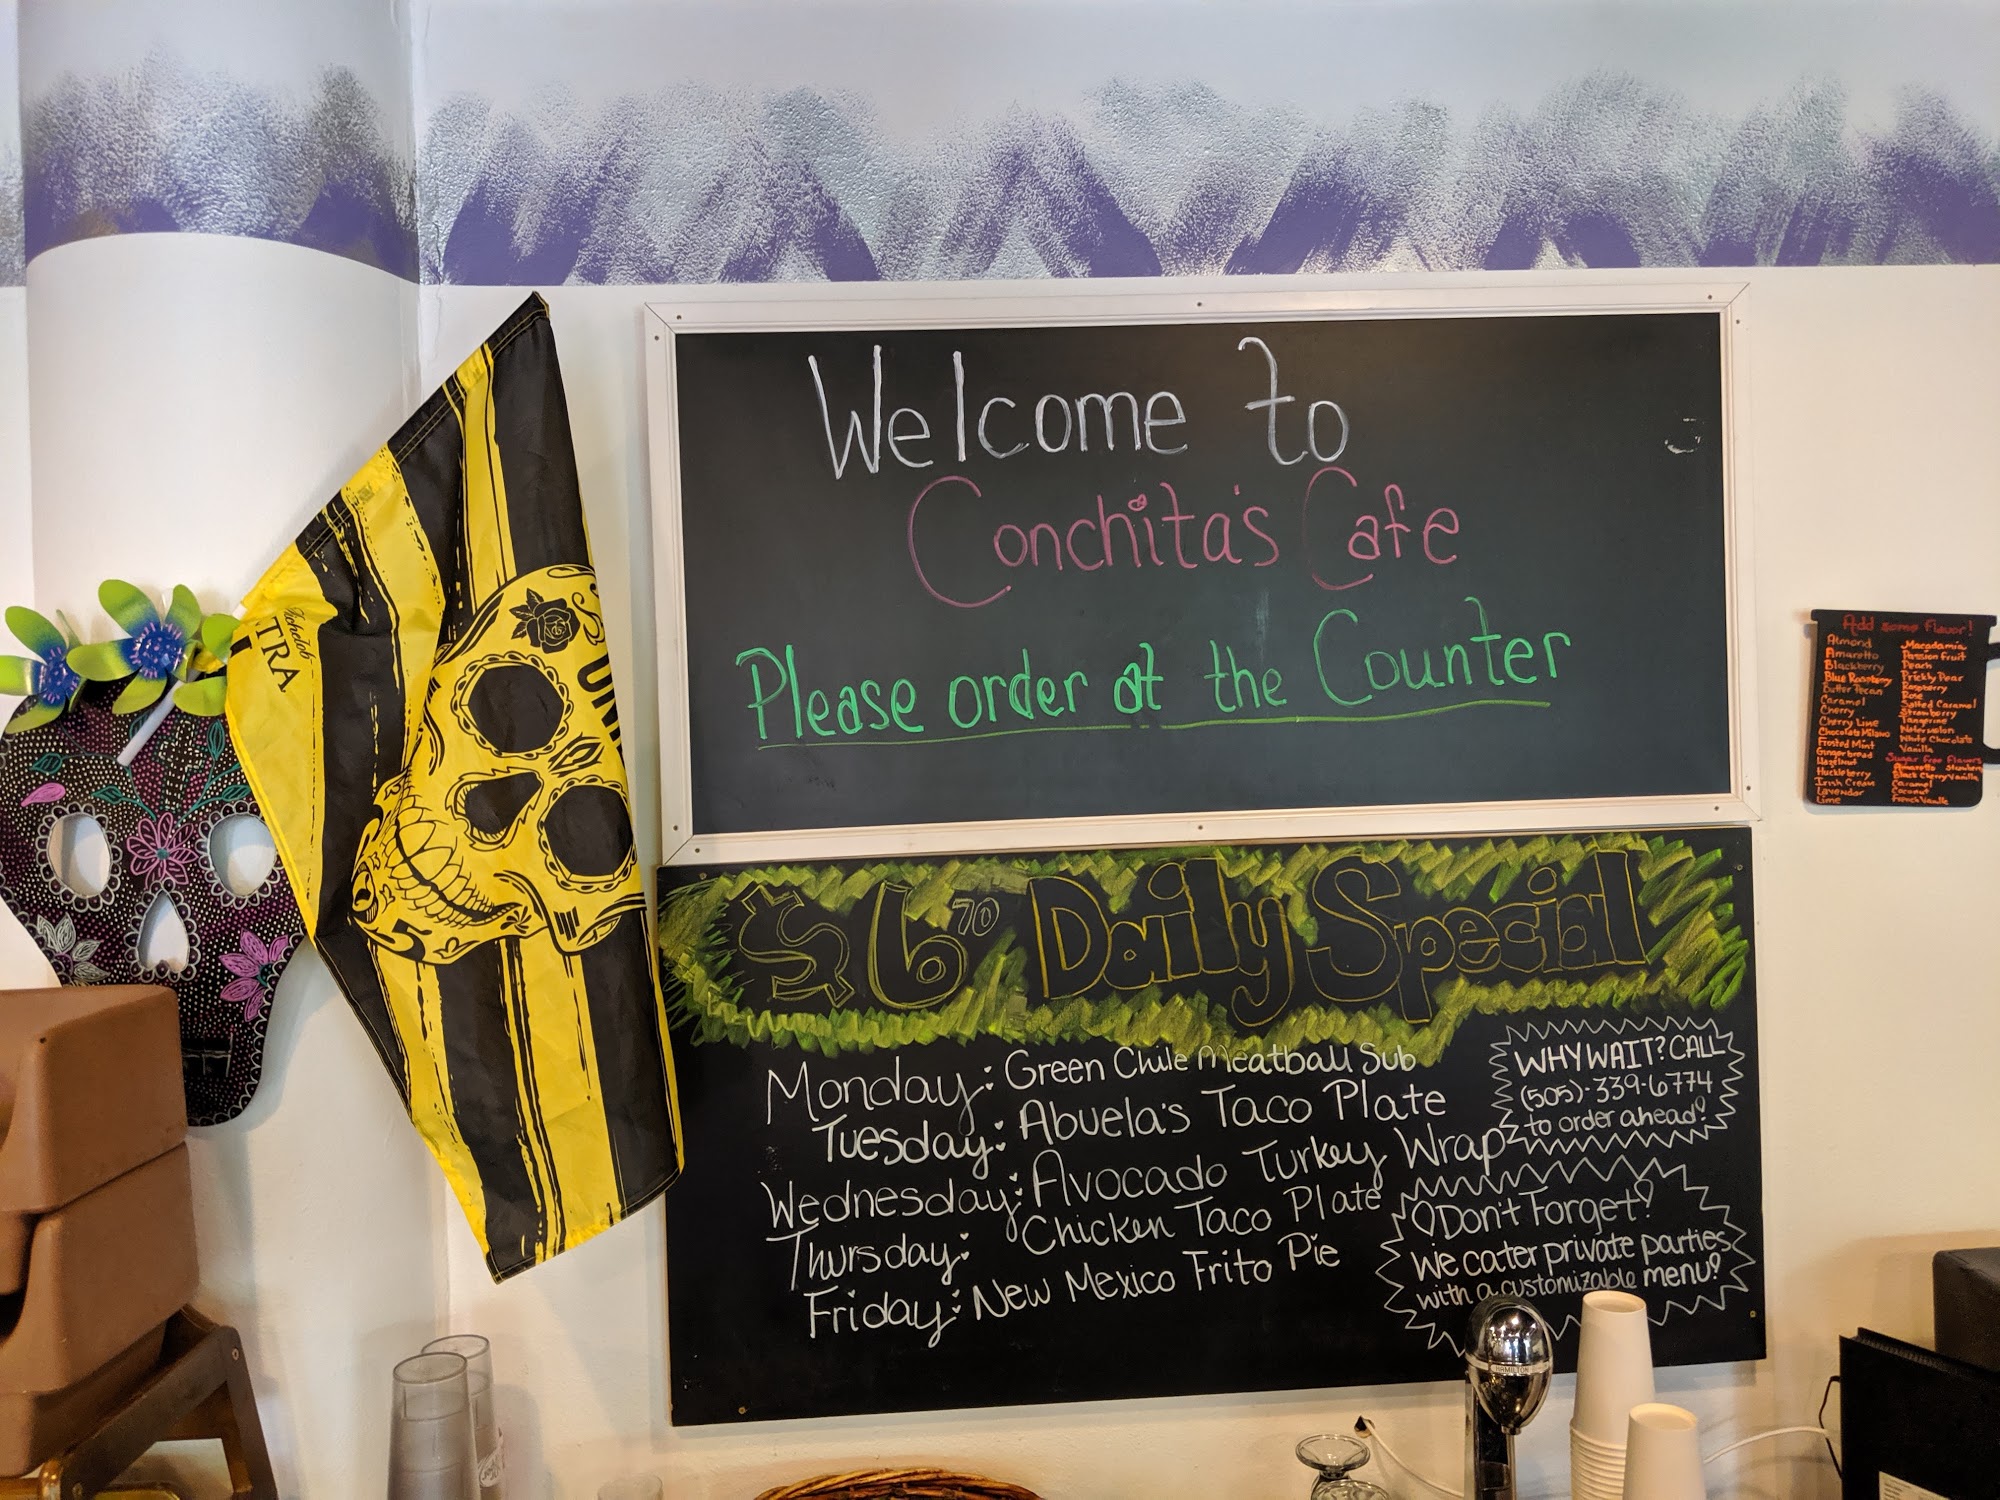 Welcome to
Conchita's Cafe
Please order at the Counter
$6 70 Daily Special
Monday: Green Chile Meatball Sub
Tuesday: Abuela's Taco Plate
Wednesday: Avocado Turkey Wrap
Thursday: Chicken Taco Plate
Friday: New Mexico Frito Pie
WHY WAIT? CALL
(505)-339-6774
to order ahead!
Don't Forget!
We cater private parties
with a customizable menu!
Michelob
TRA
Add some flavor!
Almond
Amaretto
Blackberry
Blue Raspberry
Butter Pecan
Caramel
Cherry
Cherry Lime
Chocolate Milano
Frosted Mint
Gingerbread
Hazelnut
Huckleberry
Irish Cream
Lavender
Lime
Macadamia
Passion Fruit
Peach
Prickly Pear
Raspberry
Rose
Salted Caramel
Strawberry
Tangerine
Watermelon
White Chocolate
Vanilla
Sugar Free Flavors
Amaretto
Black Cherry Vanilla
Caramel
Coconut
French Vanilla